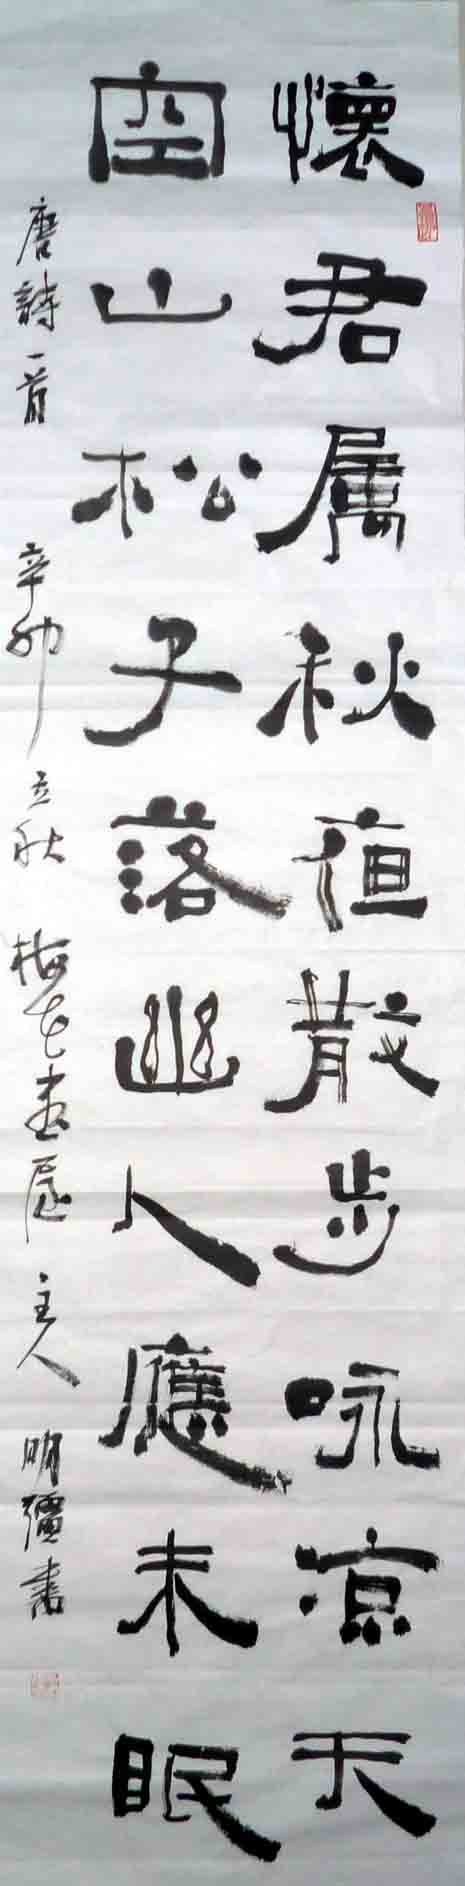 懷君属秋夜散步咏凉天
空山松子落幽人應未眠
唐詩一首 辛卯立秋 梅花書屋主人 明彊書